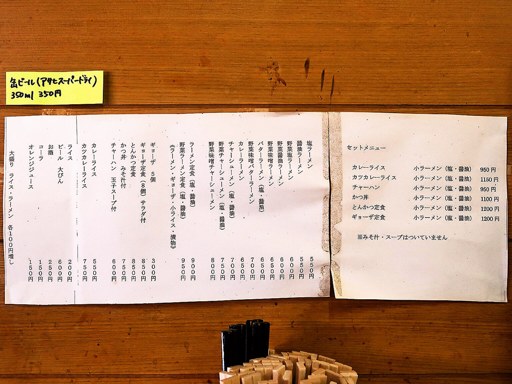 缶ビール(アサヒスーパードライ)
350ml 350円
塩ラーメン 550
醤油ラーメン 550
野菜塩ラーメン 600
野菜醤油ラーメン 600
野菜味噌ラーメン 650
バターラーメン(塩・醤油) 650
野菜味噌バターラーメン 700
カレーラーメン 650
チャーシューメン(塩・醤油) 700
野菜チャーシューメン(塩・醤油) 750
野菜味噌チャーシューメン 800
ラーメン定食(塩・醤油) 900
野菜ラーメン定食(塩・醤油) 950円
(ラーメン・ギョーザ・小ライス・漬物)
ギョーザ 5個 300
ギョーザ定食(8個) サラダ付 850
とんかつ定食 850
かつ丼 みそ汁付 750
チャーハン 玉子スープ付 600
カレーライス 550
カツカレーライス 700
ライス 200円
ビール 大びん 600円
お酒 250円
コーラ 150円
オレンジジュース 150円
大盛り ライス・ラーメン 各100円増し
セットメニュー
カレーライス 小ラーメン(塩・醤油) 950円
カツカレーライス 小ラーメン(塩・醤油) 1150円
チャーハン 小ラーメン(塩・醤油) 950円
かつ丼 小ラーメン(塩・醤油) 1100円
とんかつ定食 小ラーメン(塩・醤油) 1200円
ギョーザ定食 小ラーメン(塩・醤油) 1200円
※みそ汁・スープはついていません